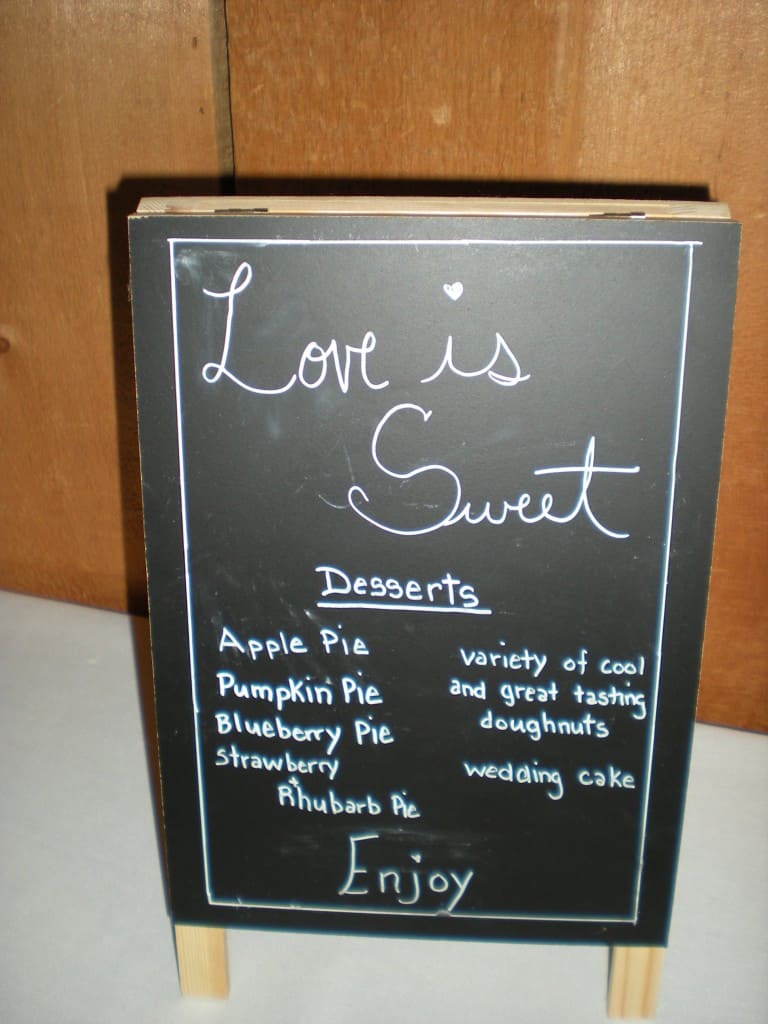 Love is
Sweet
Desserts
Apple Pie
Pumpkin Pie
Blueberry Pie
strawberry
+
Rhubarb Pie
variety of cool
and great tasting
doughnuts
wedding cake
Enjoy